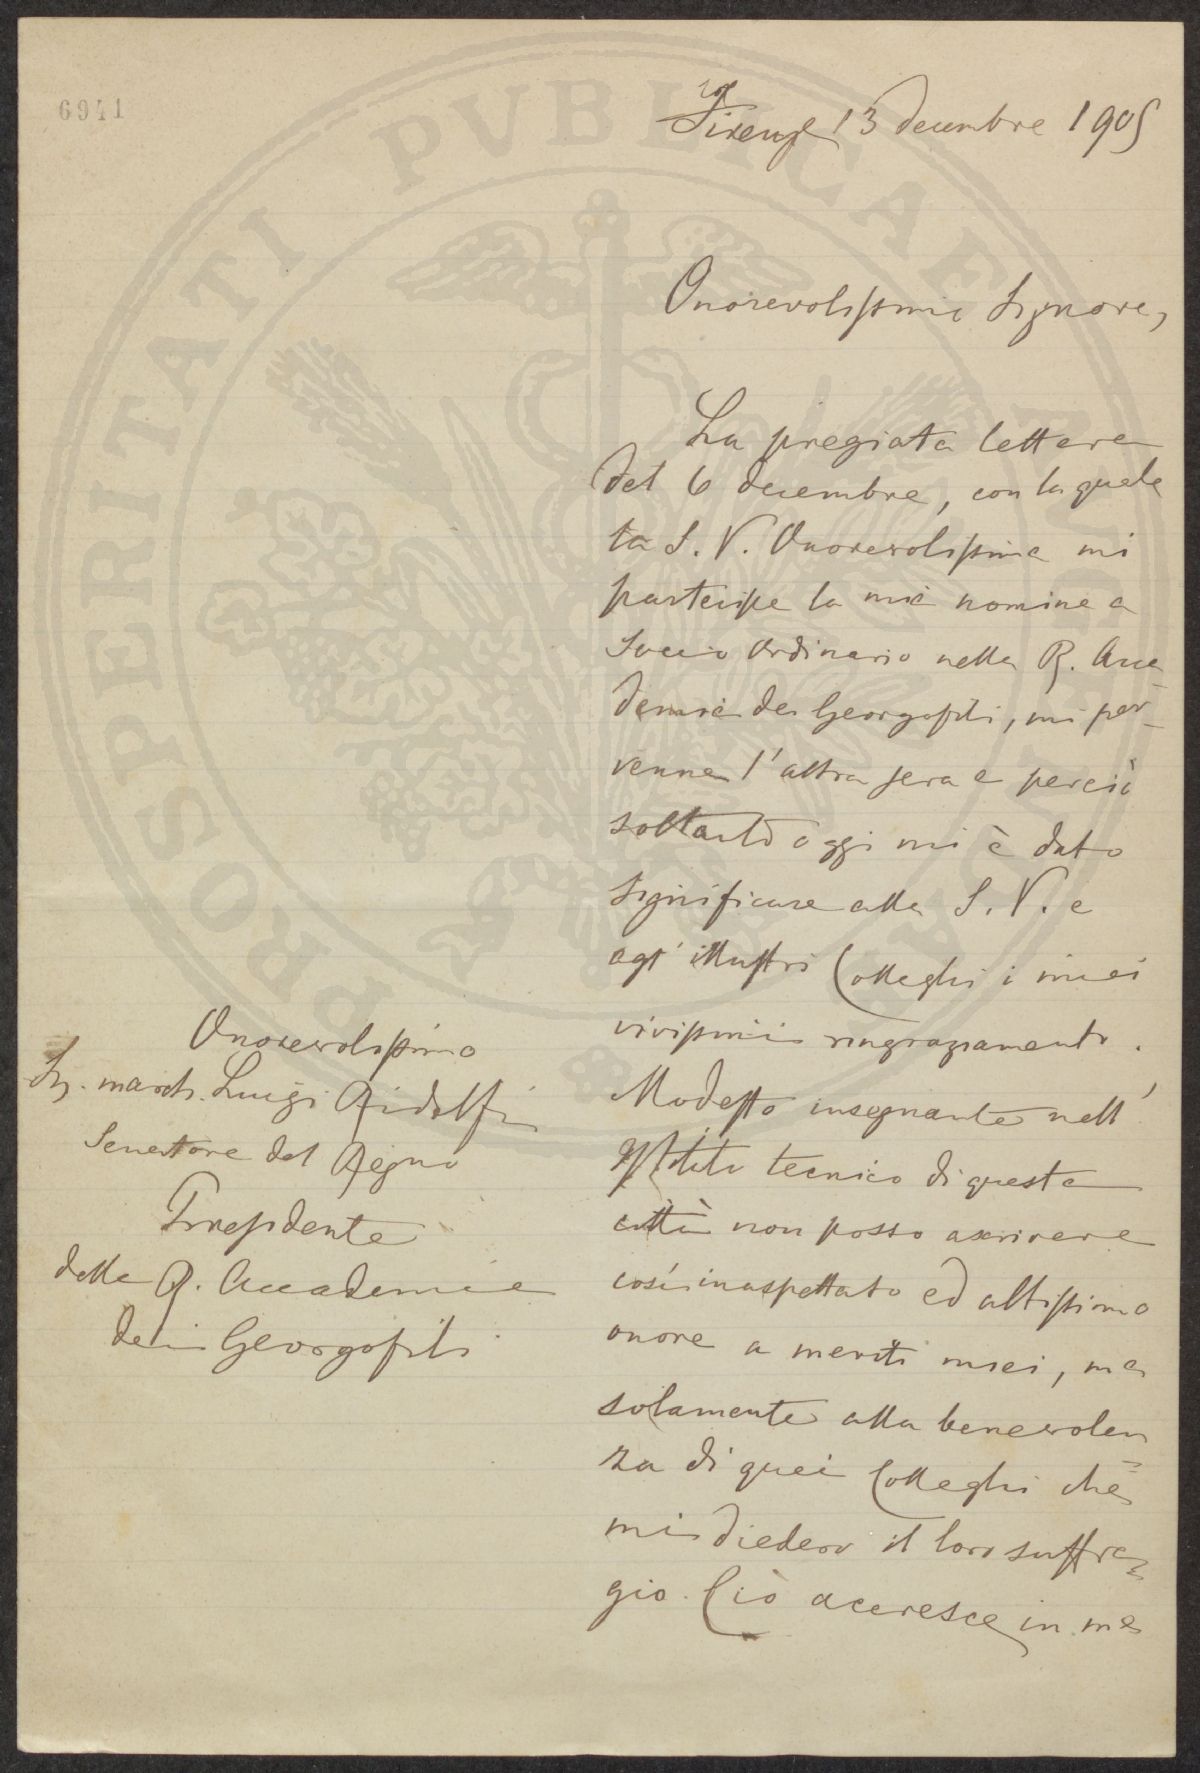 6941
Firenze 13 decembre 1905
Onorevolissimo Signore,
La pregiata lettera
del 6 decembre, con la quale
la S. V. Onorevolissima mi
partecipa la mia nomina a
Socio Ordinario nella R. Acca-
demia dei Georgofili, mi per-
venne l'altra sera e perciò
soltanto oggi mi è dato
significare alla S. V. e
agl' illustri Colleghi i miei
vivissimi ringraziamenti.
Modesto insegnante nell'
Istituto tecnico di questa
città non posso ascrivere
così inaspettato ed altissimo
onore a meriti miei, ma
solamente alla benevolen-
za di quei Colleghi che
mi diedero il loro suffra-
gio. Ciò accresce in me
Onorevolissimo
Sig. march. Luigi Ridolfi
Senatore del Regno
Presidente
della R. Accademia
dei Georgofili
PROSPERITATI PVBLICAE